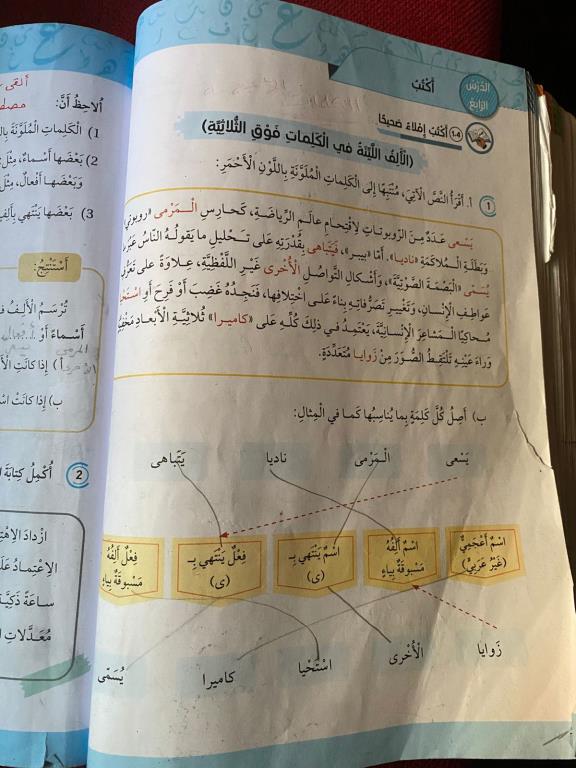 الدَّرْسُ الرّابِعُ
أَكْتُبُ
١-٤ أَكْتُبُ إِمْلاءً صَحيحًا
(الْأَلِفُ اللَّيِّنَةُ في الْكَلِماتِ فَوْقَ الثُّلاثِيَّةِ)
1 أ. أَقْرَأُ النَّصَّ الْآتِيَ، مُنْتَبِهًا إِلى الْكَلِماتِ الْمُلَوَّنَةِ بِاللَّوْنِ الْأَحْمَرِ:
يَسْعى عَدَدٌ مِنَ الرّوبوتاتِ لِاقْتِحامِ عالَمِ الرِّياضَةِ، كَحارِسِ الْمَرْمى «روبوتي
وَبَطَلَةِ الْمُلاكَمَةِ «ناديا». أَمّا «بيبر»، فَيَتَباهى بِقُدْرَتِهِ عَلى تَحْليلِ ما يَقولُهُ النّاسُ عَبْرَ
يُسَمّى «الْبَصْمَةَ الصَّوْتِيَّةَ»، وَأَشْكالِ التَّواصُلِ الْأُخْرى غَيْرِ اللَّفْظِيَّةِ، عِلاوَةً عَلى
عَواطِفِ الْإِنْسانِ، وَتَغْييرِ تَصَرُّفاتِهِ بِناءً عَلى اخْتِلافِها، فَتَجِدُهُ غَضِبَ أَوْ فَرِحَ أَوِ
مُحاكِيًا الْمَشاعِرَ الْإِنْسانِيَّةَ، يَعْتَمِدُ في ذلِكَ كُلِّهِ عَلى «كاميرا» ثُلاثِيَّةِ الْأَبْعادِ
وَراءَ عَيْنَيْهِ تَلْتَقِطُ الصُّوَرَ مِنْ زَوايا مُتَعَدِّدَةٍ.
ب) أَصِلُ كُلَّ كَلِمَةٍ بِما يُناسِبُها كَما في الْمِثالِ:
يَسْعى الْمَرْمى ناديا يَتَباهى
اسْمٌ أَعْجَمِيٌّ (غَيْرُ عَرَبِيٍّ)
اسْمٌ أَلِفُهُ مَسْبوقَةٌ بِياءٍ
اسْمٌ يَنْتَهي بِـ (ى)
فِعْلٌ يَنْتَهي بِـ (ى)
فِعْلٌ أَلِفُهُ مَسْبوقَةٌ بِياءٍ
زَوايا الْأُخْرى اسْتَحْيا كاميرا يُسَمّى
أُلاحِظُ أَنَّ:
1) الْكَلِماتِ الْمُلَوَّنَةَ
2) بَعْضَها أَسْماءٌ، مِثْل
وَبَعْضَها أَفْعالٌ، مِثْل
3) بَعْضَها يَنْتَهي
أَسْتَنْتِجُ:
تُرْسَمُ الْأَلِفُ
أَسْماءً أَوْ
أ) إِذا كانَتِ
ب) إِذا كانَتْ
2 أُكْمِلُ كِتابَةَ
ازْدادَ
الِاعْتِمادُ
ساعَةً ذَكِيَّة
مُعَدَّلاتِ